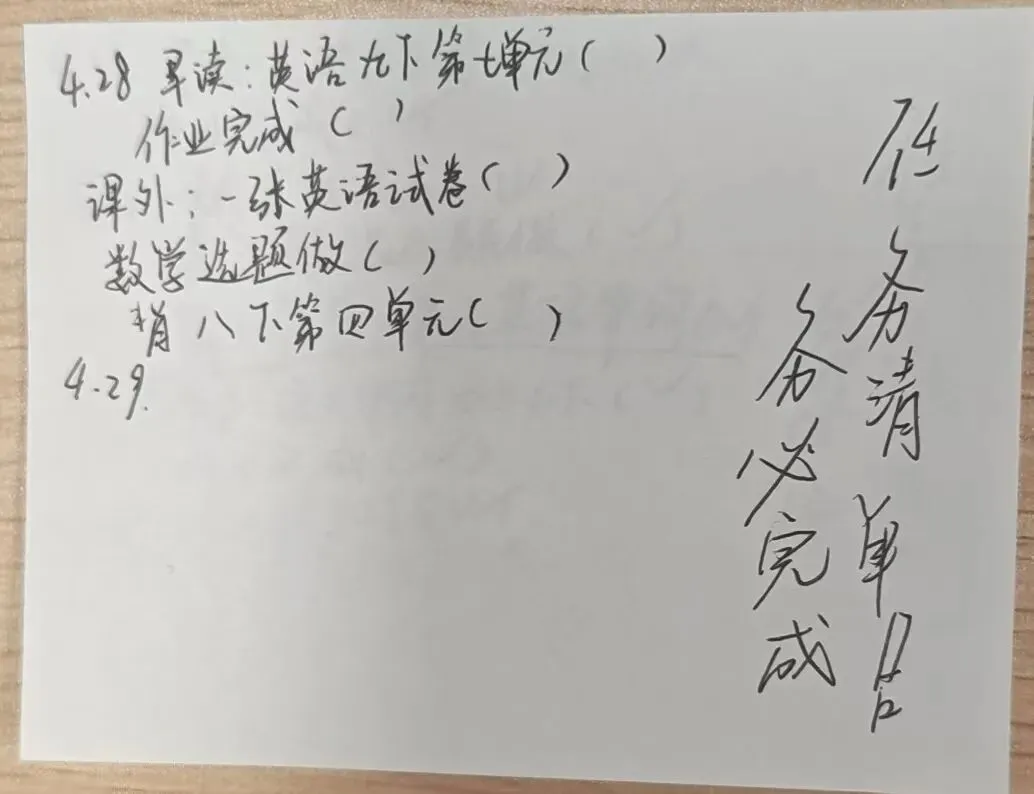 4.28 早读：英语九下第七单元（ ）
作业完成（ ）
课外：一张英语试卷（ ）
数学选题做（ ）
背八下第四单元（ ）
4.29.
任务清单!!
务必完成